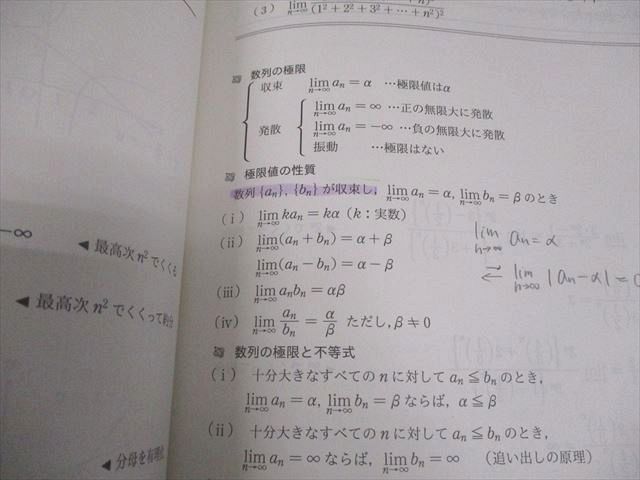 (3) lim n→∞ (1²+2²+3²+…+n²)²
数列の極限
収束 lim n→∞ aₙ=α …極限値はα
発散 lim n→∞ aₙ=∞ …正の無限大に発散
lim n→∞ aₙ=−∞ …負の無限大に発散
振動 …極限はない
極限値の性質
数列{aₙ}, {bₙ}が収束し, lim n→∞ aₙ=α, lim n→∞ bₙ=βのとき
(i) lim n→∞ kaₙ=kα (k:実数)
(ii) lim n→∞ (aₙ+bₙ)=α+β
lim n→∞ (aₙ−bₙ)=α−β
(iii) lim n→∞ aₙbₙ=αβ
(iv) lim n→∞ aₙ/bₙ=α/β ただし,β≠0
lim n→∞ aₙ=α
⇄ lim n→∞ |aₙ−α|=0
数列の極限と不等式
(i) 十分大きなすべてのnに対してaₙ≦bₙのとき,
lim n→∞ aₙ=α, lim n→∞ bₙ=βならば, α≦β
(ii) 十分大きなすべてのnに対してaₙ≦bₙのとき,
lim n→∞ aₙ=∞ならば, lim n→∞ bₙ=∞ (追い出しの原理)
−∞
◀最高次n²でくくる
◀最高次n²でくくって約分
◀分母を有理化